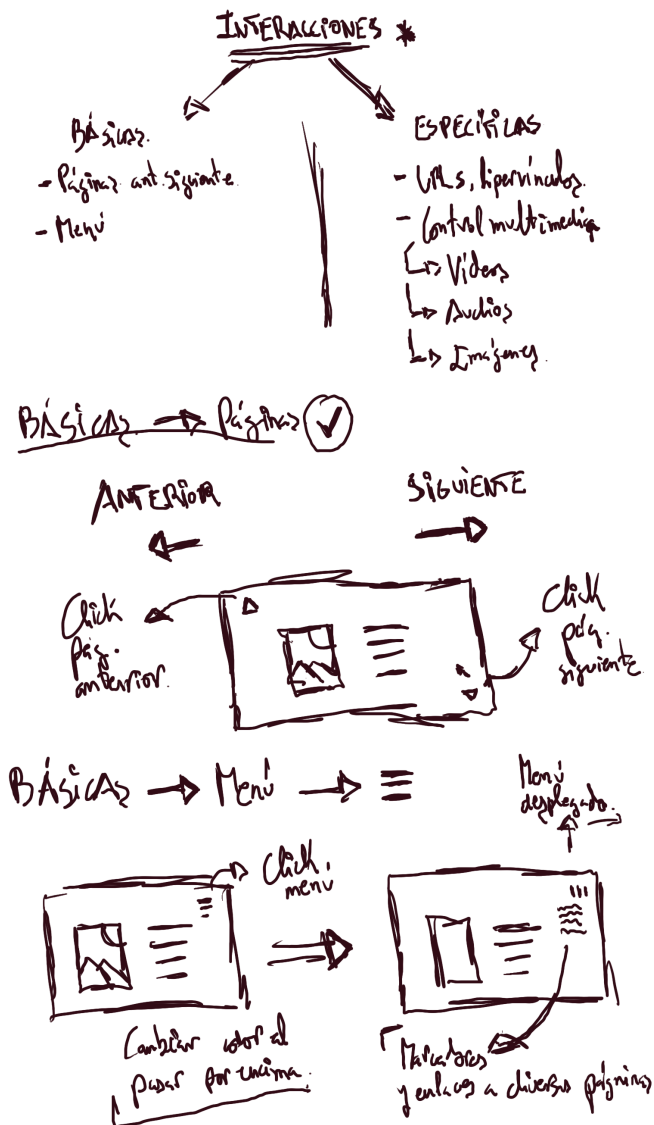 INTERACCIONES *
BÁSICAS.
- Páginas ant. siguiente.
- Menú
ESPECÍFICAS
- URLs, hipervínculos.
- Control multimedia
Vídeos
Audios
Imágenes.
BÁSICAS → Páginas ✓
ANTERIOR
SIGUIENTE
Click
pág.
anterior.
Click
pág.
siguiente
BÁSICAS → Menú → ☰
Menú
desplegado.
Click
menú
Cambiar color al
pasar por encima.
Marcadores
y enlaces a diversas páginas